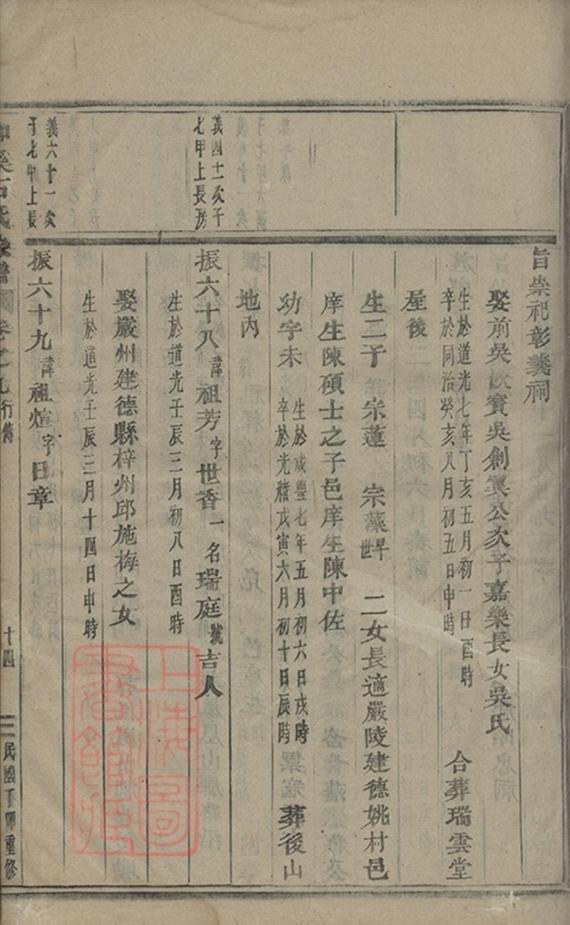 旨崇祀彰義祠
娶前吳 賓吳創冀公次子嘉樂長女吳氏
生於道光七年丁亥五月初一日酉時
卒於同治癸亥八月初五日申時
合葬瑞雲堂
屋後
生二子 宗蓮 宗藻早世 二女長適嚴陵建德姚村邑
庠生陳碩士之子邑庠生陳中佐
幼字未
生於咸豐七年五月初六日戌時
卒於光緒戊寅六月初十日辰時
葬後山
地內
義四十二次子
七甲上長房
振六十八諱祖芳字世香一名瑞庭號吉人
生於道光壬辰三月初八日酉時
娶嚴州建德縣梓州邱施梅之女
生於道光壬辰三月十四日申時
義六十一次
子七甲上長
振六十九諱祖煊字日章
溪石氏宗譜 卷之九行傳 十四 民國丁卯重修
上海圖書館藏